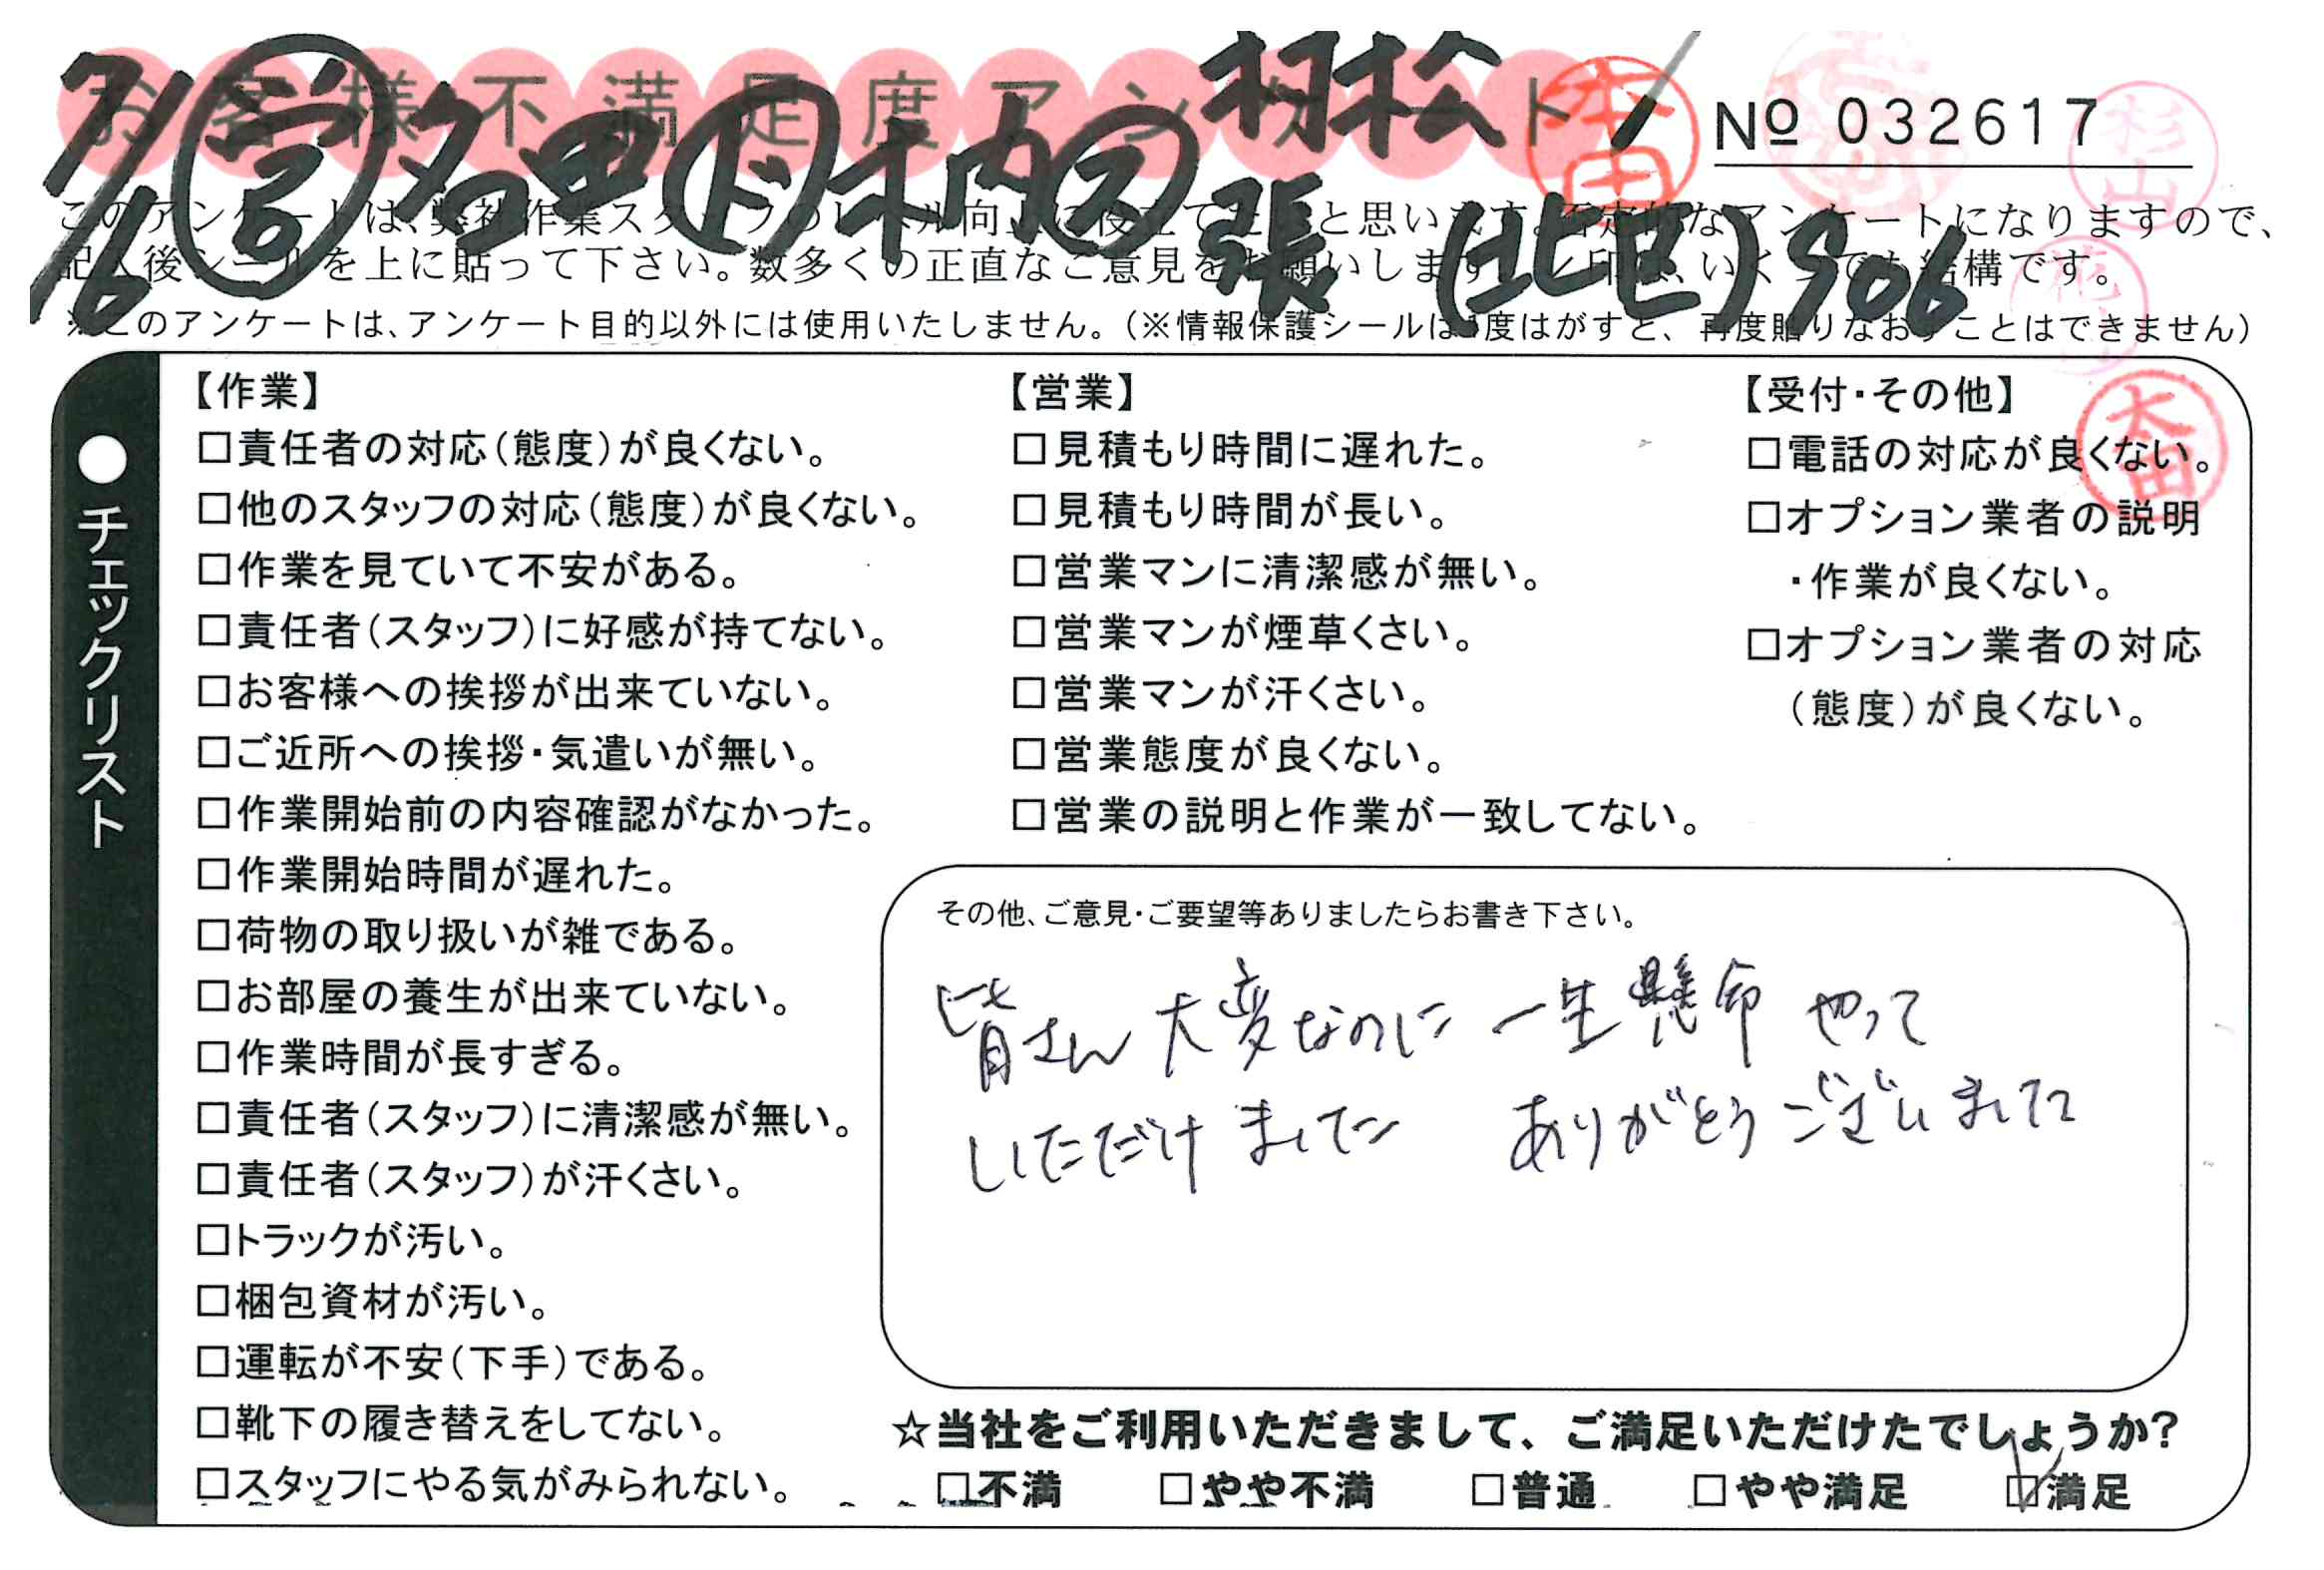 お客様不満足度アンケート
7/6 名田 ド 木内 ス 相松 張 (北区) 906
本田
№ 032617
杉山
このアンケートは、弊社作業スタッフのレベル向上に役立てたいと思います。否定的なアンケートになりますので、
記入後シールを上に貼って下さい。数多くの正直なご意見をお願いします。
※このアンケートは、アンケート目的以外には使用いたしません。(※情報保護シールは1度はがすと、再度貼りなおすことはできません)
太田
●チェックリスト
【作業】
□責任者の対応(態度)が良くない。
□他のスタッフの対応(態度)が良くない。
□作業を見ていて不安がある。
□責任者(スタッフ)に好感が持てない。
□お客様への挨拶が出来ていない。
□ご近所への挨拶・気遣いが無い。
□作業開始前の内容確認がなかった。
□作業開始時間が遅れた。
□荷物の取り扱いが雑である。
□お部屋の養生が出来ていない。
□作業時間が長すぎる。
□責任者(スタッフ)に清潔感が無い。
□責任者(スタッフ)が汗くさい。
□トラックが汚い。
□梱包資材が汚い。
□運転が不安(下手)である。
□靴下の履き替えをしてない。
□スタッフにやる気がみられない。
【営業】
□見積もり時間に遅れた。
□見積もり時間が長い。
□営業マンに清潔感が無い。
□営業マンが煙草くさい。
□営業マンが汗くさい。
□営業態度が良くない。
□営業の説明と作業が一致してない。
【受付・その他】
□電話の対応が良くない。
□オプション業者の説明
・作業が良くない。
□オプション業者の対応
(態度)が良くない。
その他、ご意見・ご要望等ありましたらお書き下さい。
皆さん 大変なのに 一生懸命 やって
いただけました ありがとうございました
☆当社をご利用いただきまして、ご満足いただけたでしょうか?
□不満 □やや不満 □普通 □やや満足 ☑満足